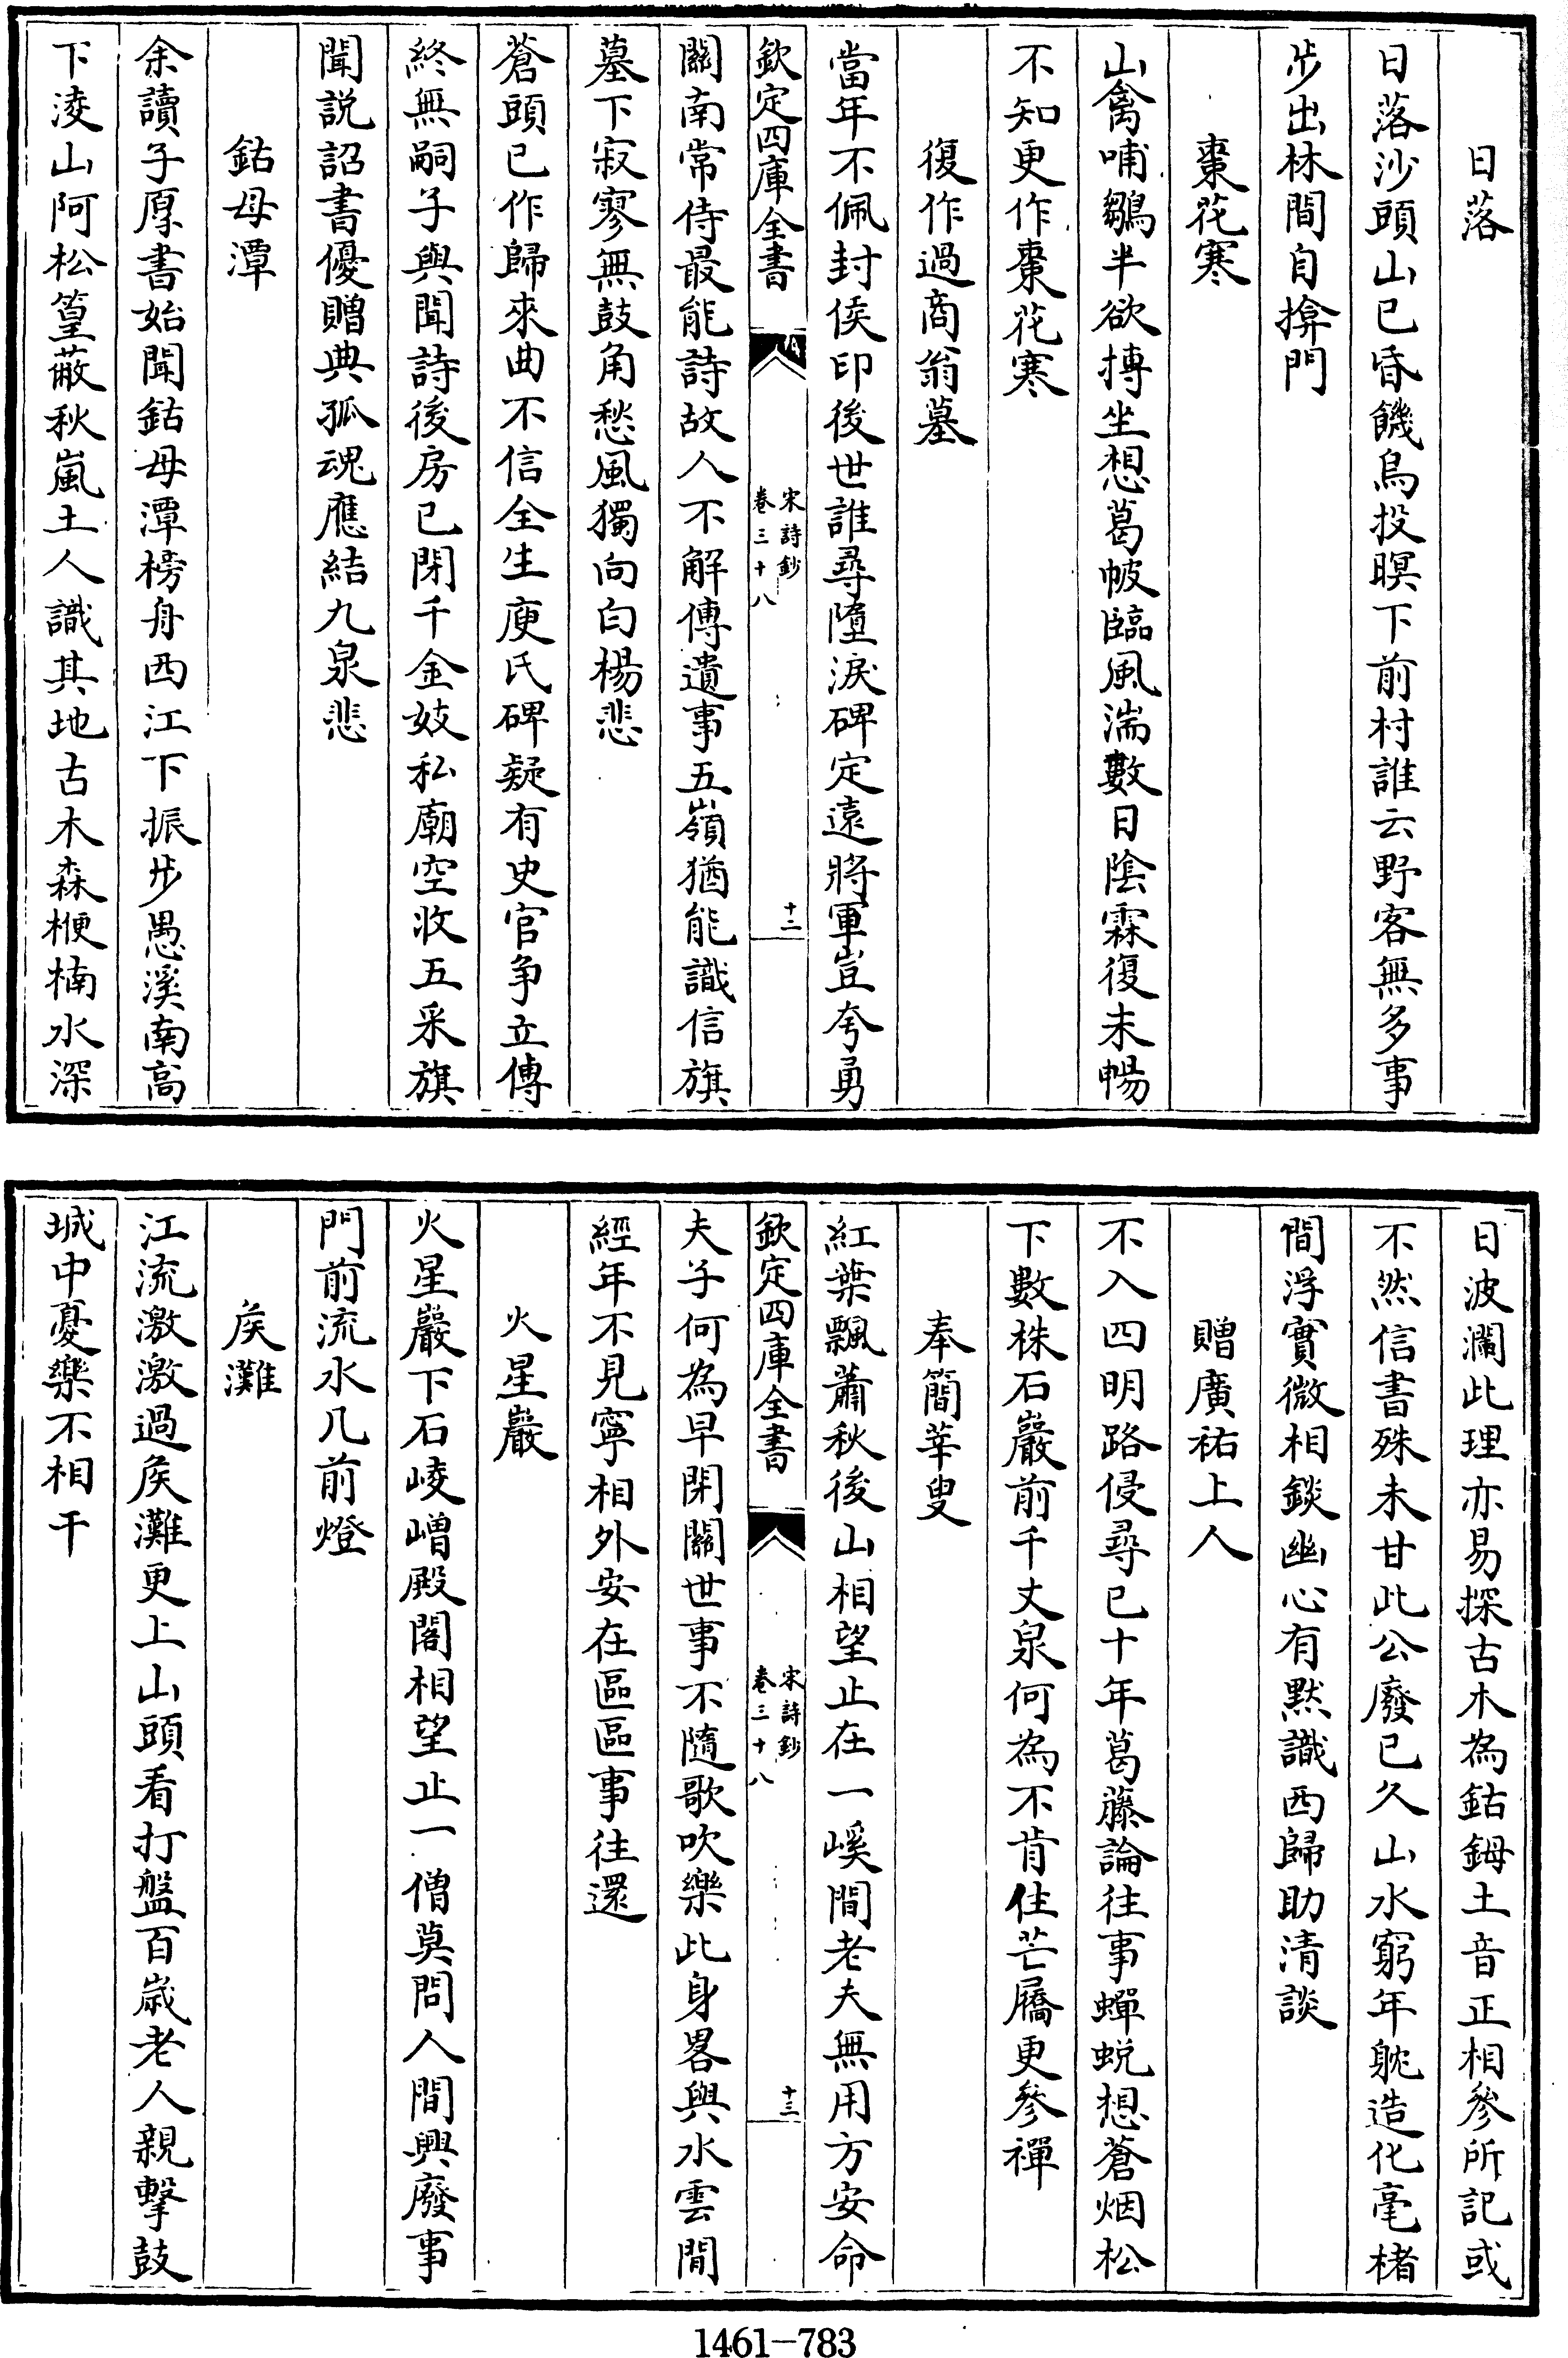 日落
日落沙頭山已昏饑烏投暝下前村誰云野客無多事
步出林間自揜門
棗花寒
山禽哺鶵半欲摶坐想葛帔臨風湍數日陰霖復未暢
不知更作棗花寒
復作過商翁墓
當年不佩封侯印後世誰尋墮淚碑定遠將軍豈夸勇
欽定四庫全書
宋詩鈔
卷三十八
十二
關南常侍最能詩故人不解傳遺事五嶺猶能識信旗
墓下寂寥無鼓角愁風獨向白楊悲
蒼頭已作歸來曲不信全生庾氏碑疑有史官争立傳
終無嗣子與聞詩後房已閉千金妓私廟空收五采旗
聞説詔書優贈典孤魂應結九泉悲
鈷母潭
余讀子厚書始聞鈷母潭榜舟西江下振步愚溪南高
下淩山阿松篁蔽秋嵐土人識其地古木森楩楠水深
日波瀾此理亦易探古木為鈷鉧土音正相參所記或
不然信書殊未甘此公廢已久山水窮年躭造化毫楮
間浮實微相錟幽心有黙識西歸助清談
贈廣祐上人
不入四明路侵尋已十年葛藤論往事蟬蜕想蒼烟松
下數株石巖前千丈泉何為不肯住芒屩更參禪
奉簡莘叟
紅葉飄蕭秋後山相望止在一嵠間老夫無用方安命
欽定四庫全書
宋詩鈔
卷三十八
十三
夫子何為早閉關世事不隨歌吹樂此身畧與水雲閒
經年不見寧相外安在區區事往還
火星巖
火星巖下石崚嶒殿閣相望止一僧莫問人間興廢事
門前流水几前燈
矦灘
江流激激過矦灘更上山頭看打盤百歲老人親擊鼓
城中憂樂不相干
1461-783